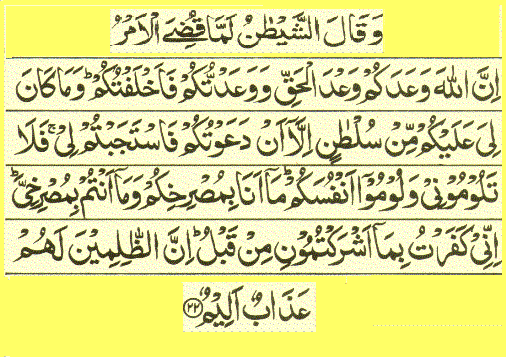 وَقَالَ الشَّيْطٰنُ لَمَّا قُضِيَ الْاَمْرُ
اِنَّ اللّٰهَ وَعَدَكُمْ وَعْدَ الْحَقِّ وَوَعَدْتُّكُمْ فَاَخْلَفْتُكُمْ ؕ وَمَا كَانَ
لِيَ عَلَيْكُمْ مِّنْ سُلْطٰنٍ اِلَّاۤ اَنْ دَعَوْتُكُمْ فَاسْتَجَبْتُمْ لِيْ ۚ فَلَا
تَلُوْمُوْنِيْ وَلُوْمُوْۤا اَنْفُسَكُمْ ؕ مَاۤ اَنَا بِمُصْرِخِكُمْ وَمَاۤ اَنْتُمْ بِمُصْرِخِيَّ ؕ
اِنِّيْ كَفَرْتُ بِمَاۤ اَشْرَكْتُمُوْنِ مِنْ قَبْلُ ؕ اِنَّ الظّٰلِمِيْنَ لَهُمْ
عَذَابٌ اَلِيْمٌ ۝٢٢